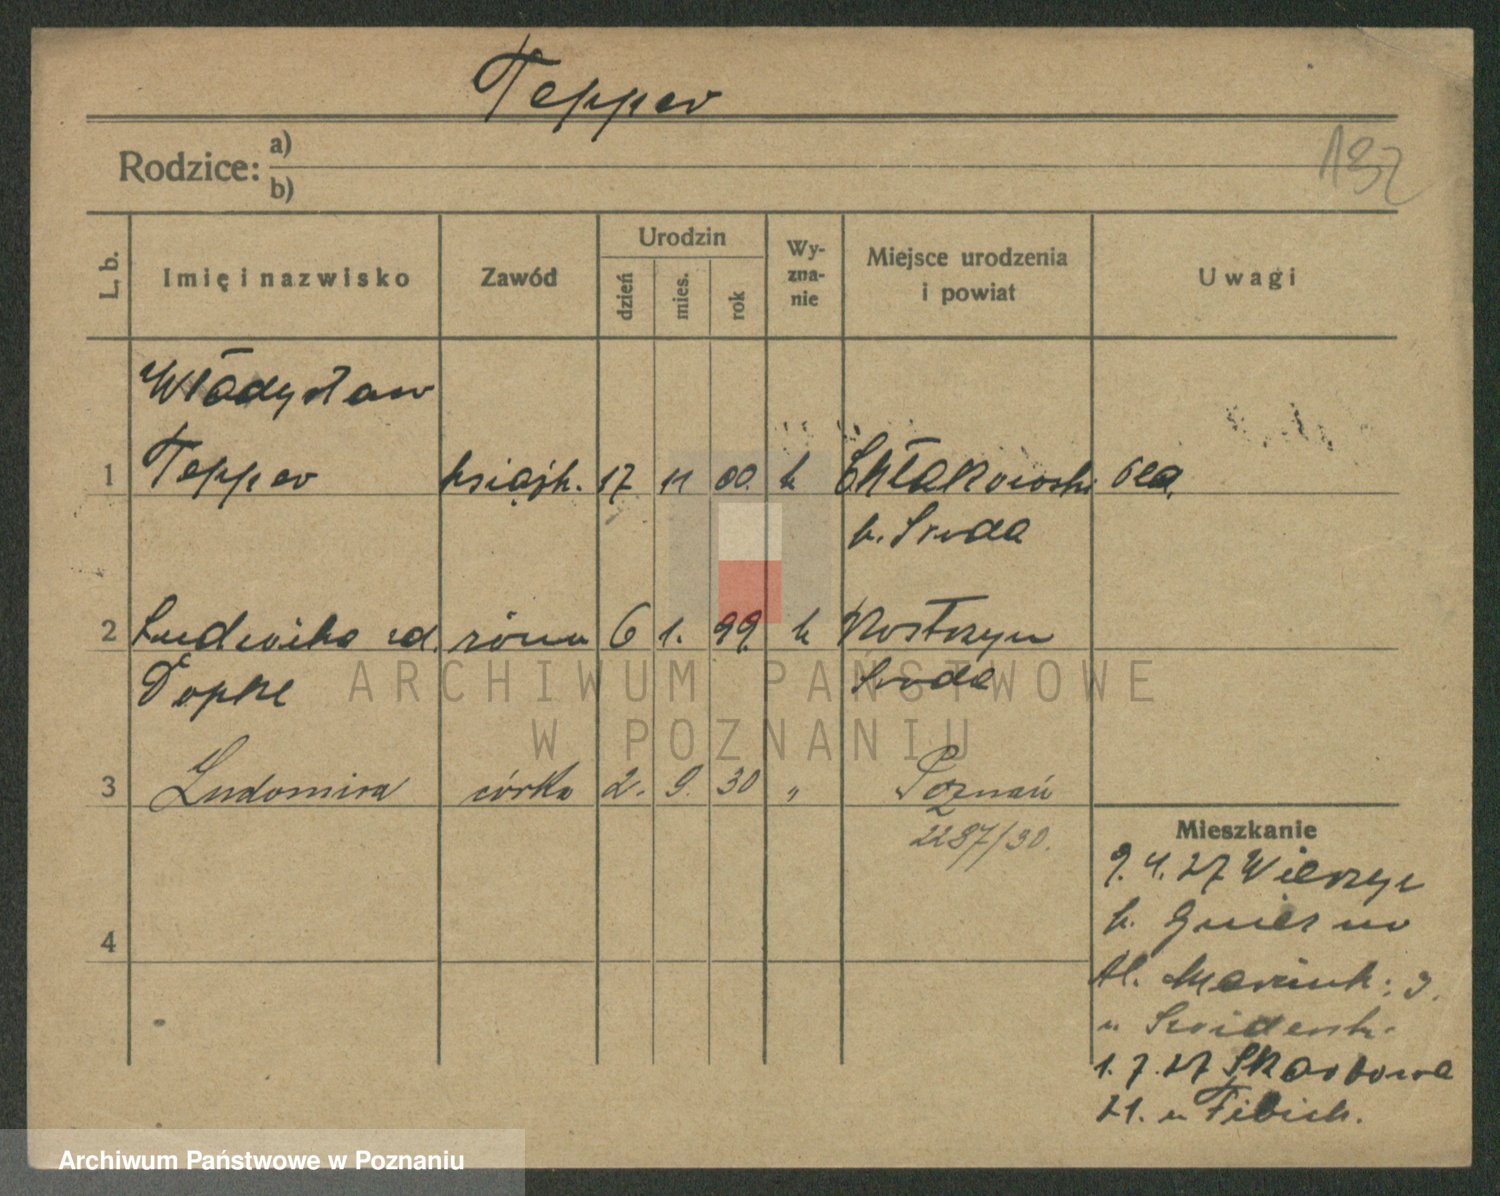 Tepper
132
Rodzice: a)
b)
L. b. Imię i nazwisko Zawód Urodzin dzień mies. rok Wyznanie Miejsce urodzenia i powiat Uwagi
Władysław
1 Tepper książk. 17 11 00. k
p. Środa
2 Ludwika żona 6 1. 99. k Kostrzyn
Środa
ARCHIWUM PAŃSTWOWE
W POZNANIU
3 Ludomira córka 2. 9. 30 " Poznań
2287/30.
4
Mieszkanie
9. 4. 27
p. Gniezno
Al. Marcink: 3.
1. 7. 27 Skarbowa
21. u
Archiwum Państwowe w Poznaniu